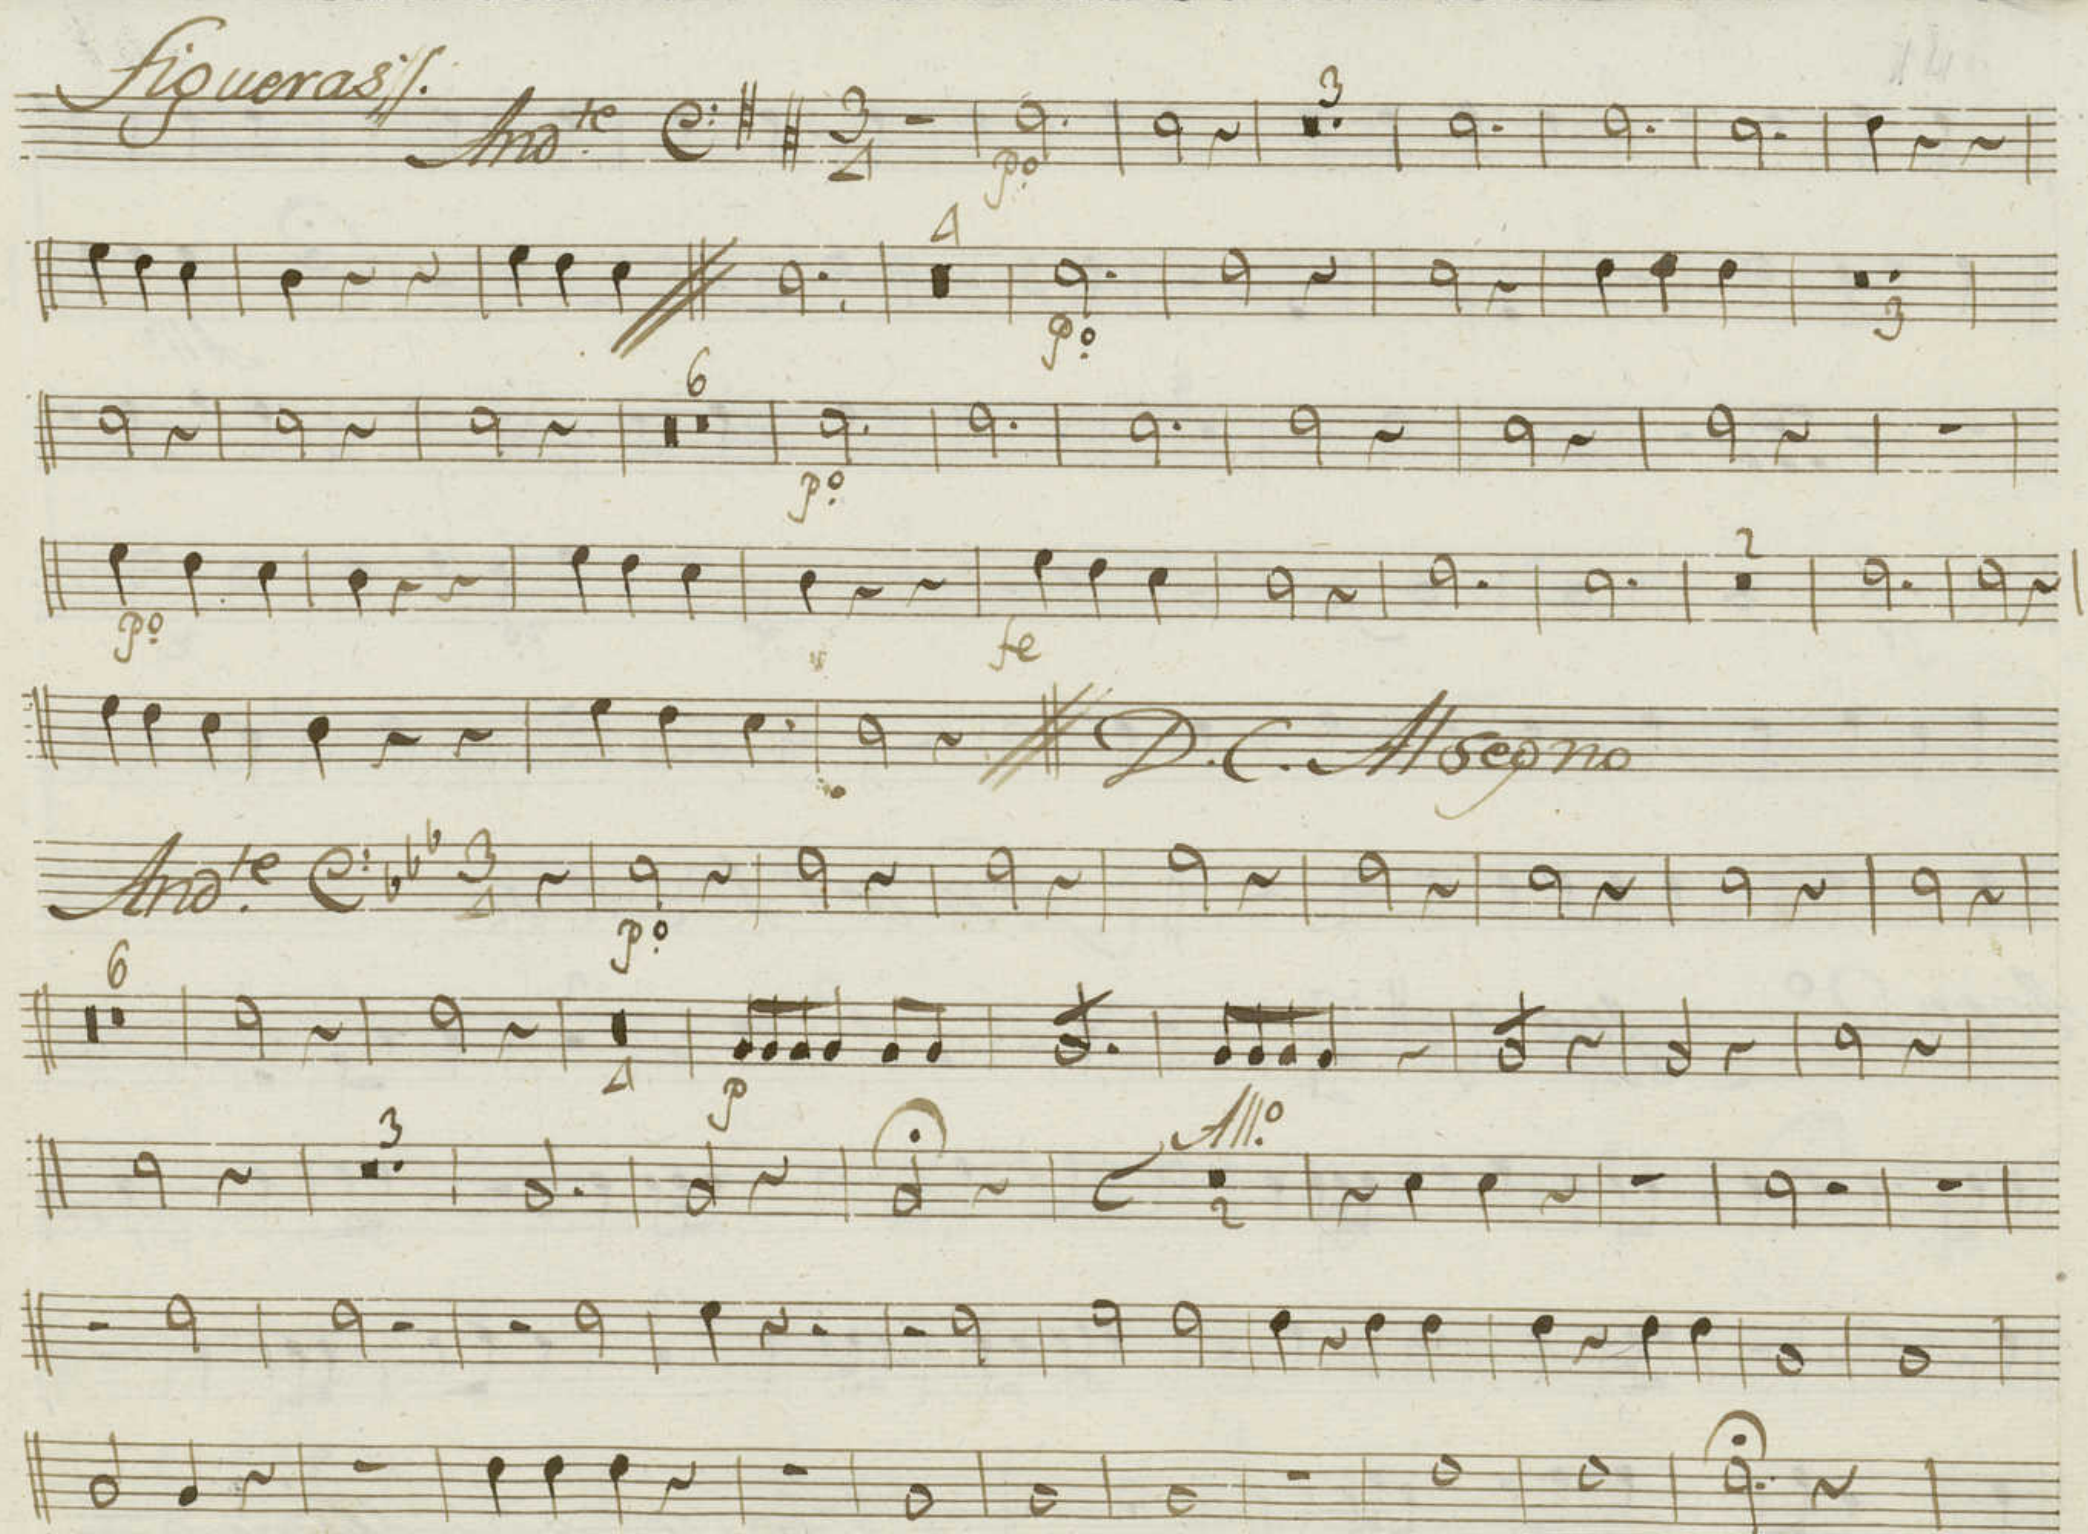 Figueras //.
And.te 3 4 3
p.o
4
p.o 3
6
p.o
2
p.o fe
D. C. Al segno
And.te 3 4
p.o
6
4 p
3 All.o
2